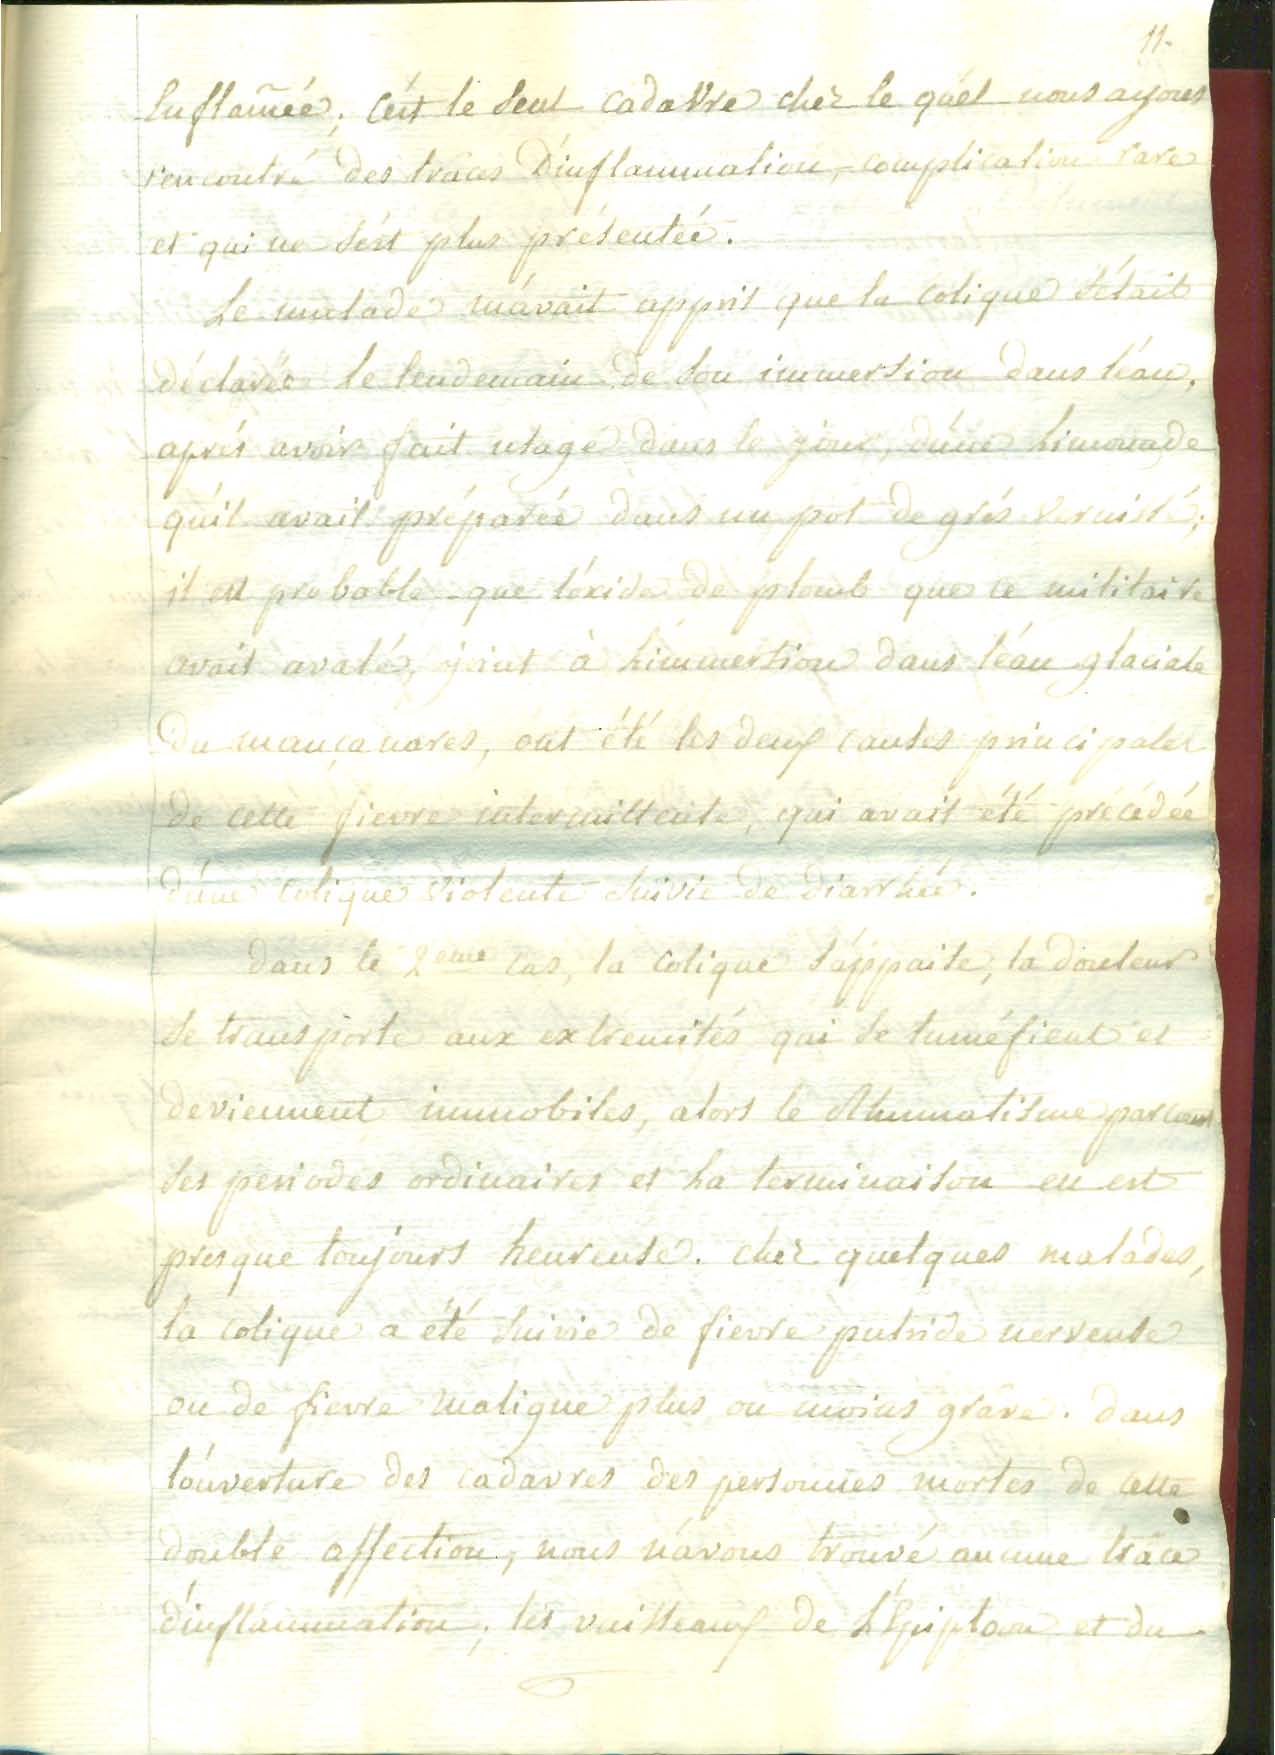 11.
Enflam̃ée; c'ést le seul cadavre chez le quél nous ayons
rencontré des traces d'inflammation, complication rare
et qui ne s'ést plus présentée.
Le malade m'avait appris que la colique s'était
déclarée le lendemain de son immersion dans l'éau,
aprés avoir fait usage dans le jour, d'une Limonade
qu'il avait préparée dans un pot de grés vernissé;
il est probable que l'oxide de plomb que ce militaire
avait avalé, joint à L'immersion dans l'éau glaciale
du mançanares, ont été les deux causes principales
de cette fievre intermittente, qui avait été précédée
d'une colique violente suivie de diarrhée.
dans le 2eme cas, la colique s'appaise, la douleur
se transporte aux extremités qui se tuméfient et
deviennent immobiles, alors le Rhumatisme parcourt
ses periodes ordinaires et la terminaison en est
presque toujours heureuse. chez quelques malades,
la colique a été suivie de fievre putride nerveuse
ou de fievre maligne plus ou moins grâve. dans
l'ouverture des cadavres des personnes mortes de cette
double affection, nous n'avons trouvé aucune trâce
d'inflammation, les vaisseaux de L'Épiploon et du